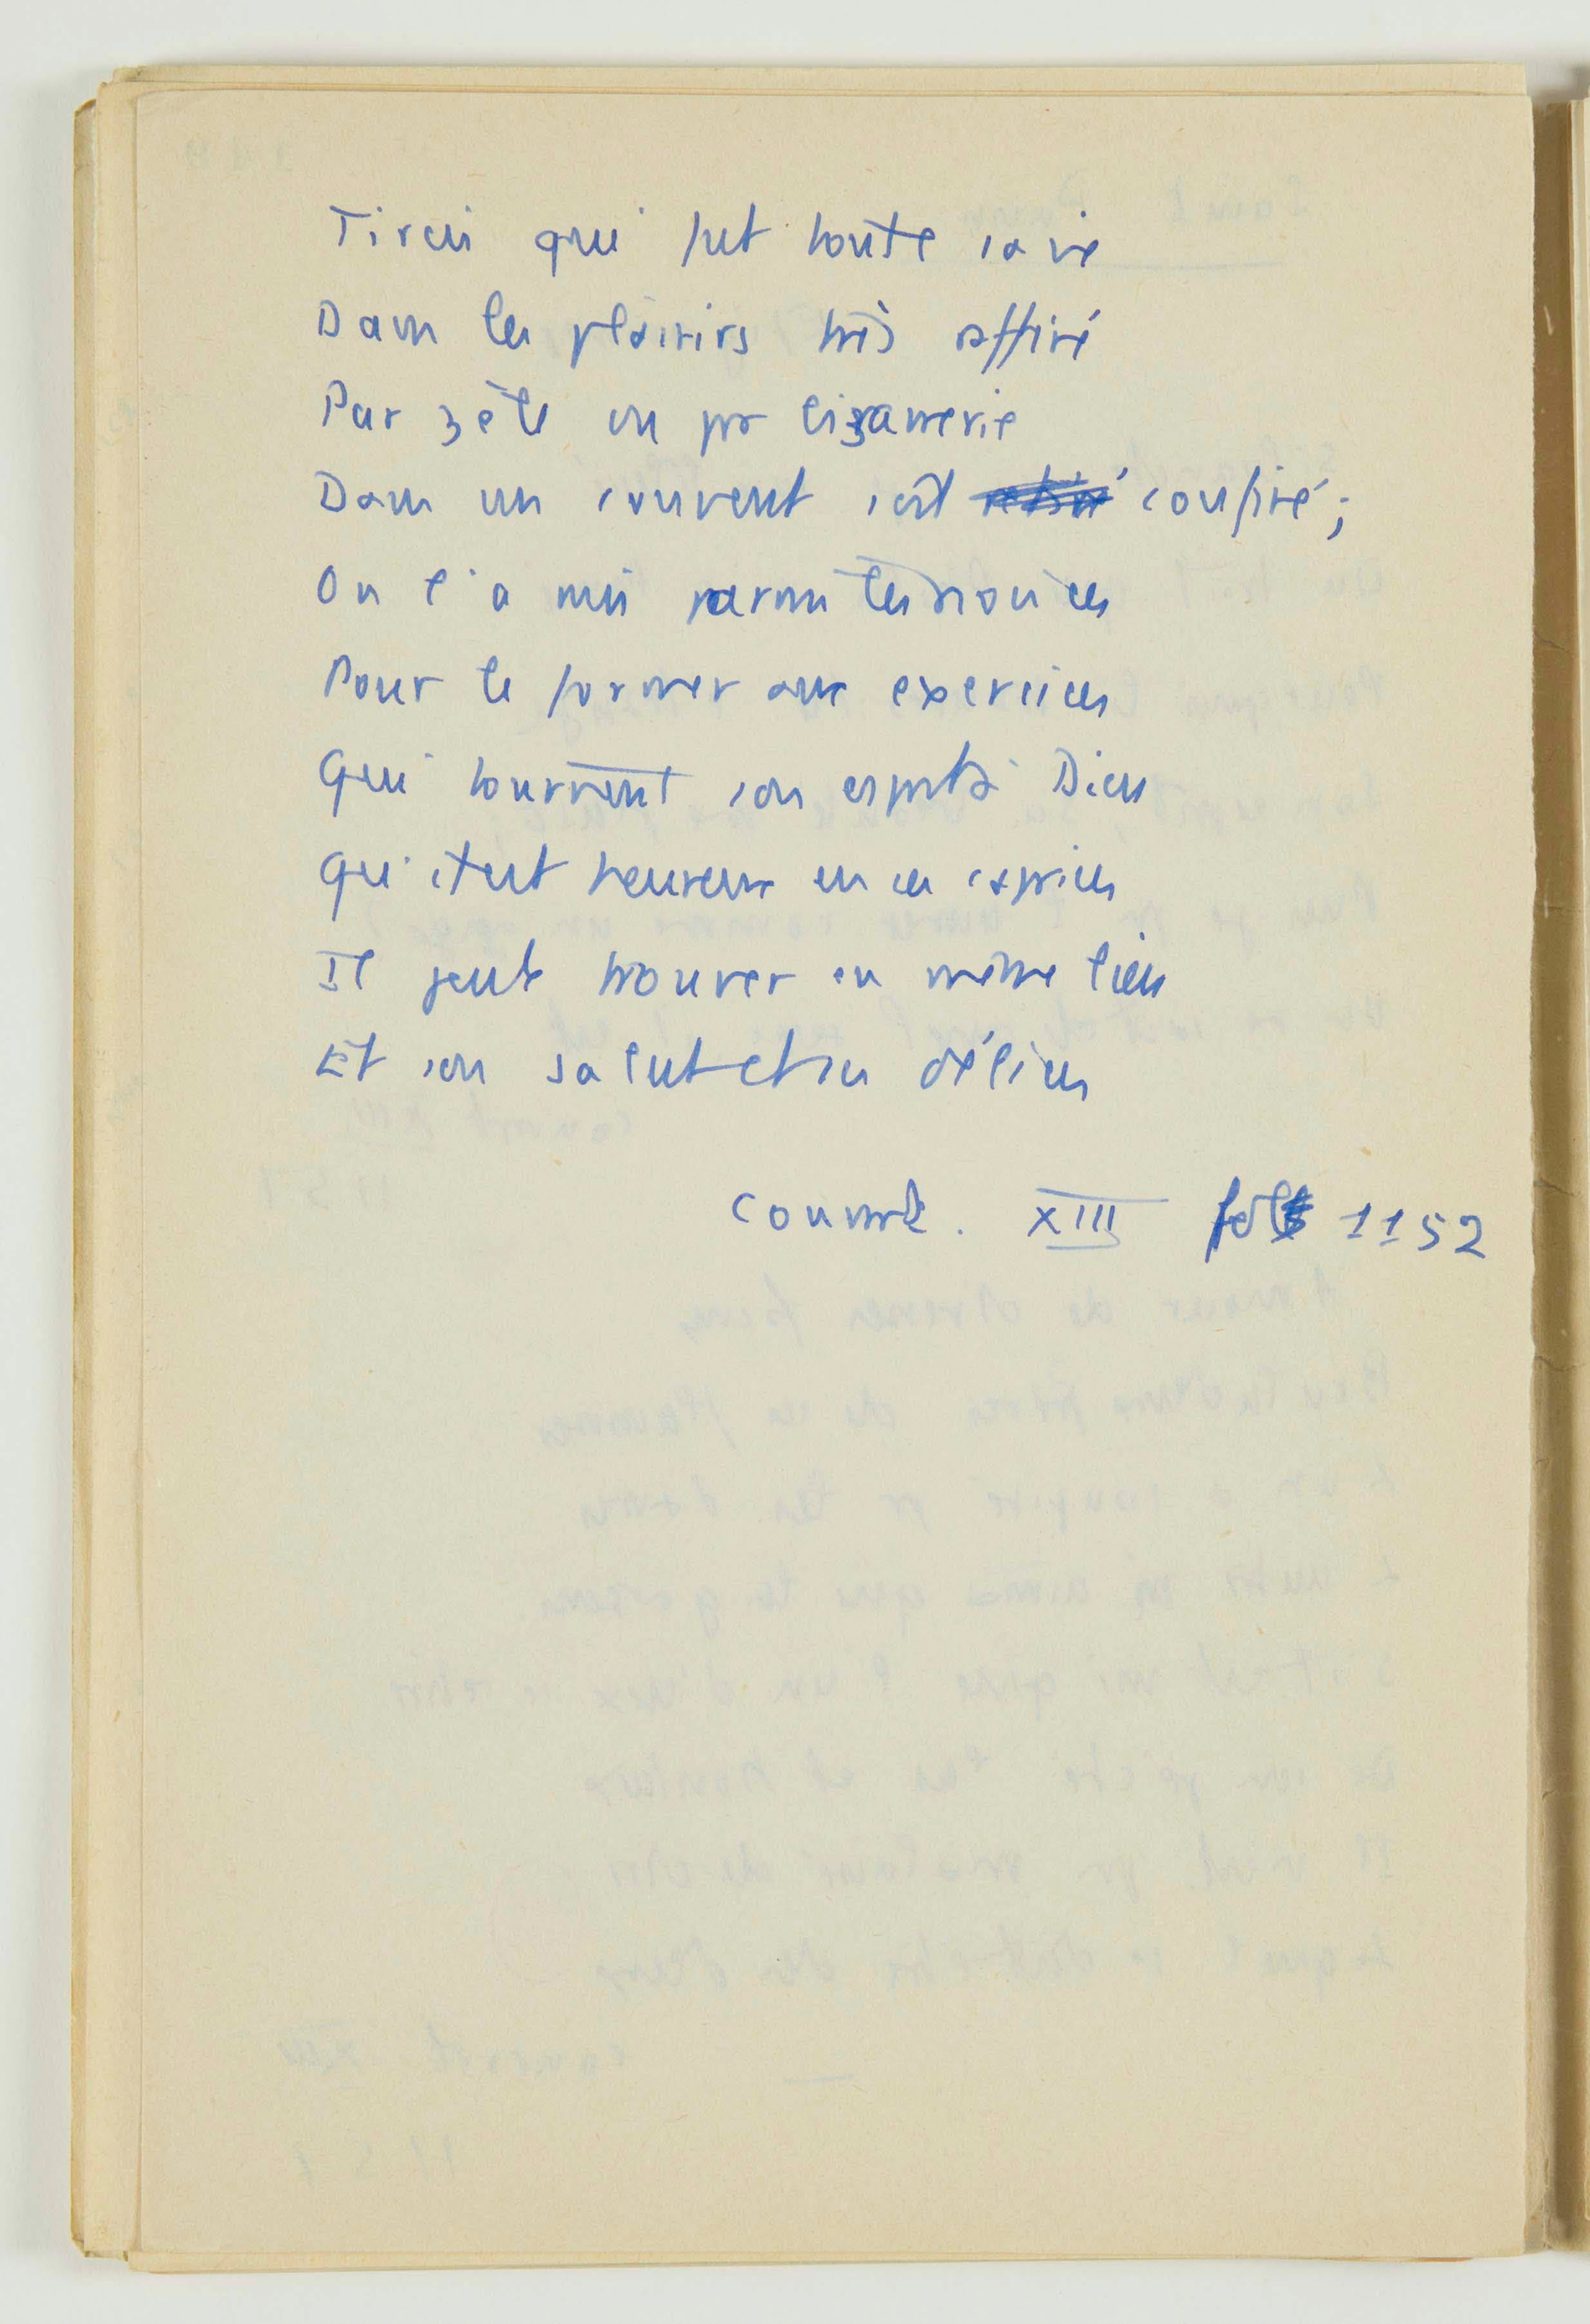 Tircis qui fut toute sa vie
Dans les plaisirs très affiné
Par zèle ou pr bizarrerie
Dans un couvent s'est confiné;
On l'a mis parmi les novices
Pour le former aux exercices
Qui tournent son esprit à Dieu
Qu'il est heureux en ses caprices
Il peut trouver en même lieu
Et son salut et ses délices
Conrart. XIII fol 1152